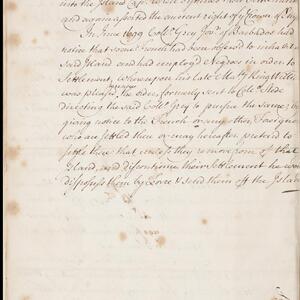 into the Island Capt.
and again asserted the ancient right of ye Crown of
In June 1699 Collo. Grey Govr. of Barbados had
notice that some French had been
said Island and had employd Negroes in order to
Settlement, Whereupon his late Maty King Willm.
was pleased to
the orders formerly sent to Collo.
directing the said Collo. Grey to pursue the same; by
giving notice to the French or any other Foreigners
who are settled there or may hereafter pretend to
settle there that unless they remove from of that
Island, and discontinue their Settlement he wou
disposess them by Force & send them off the Island